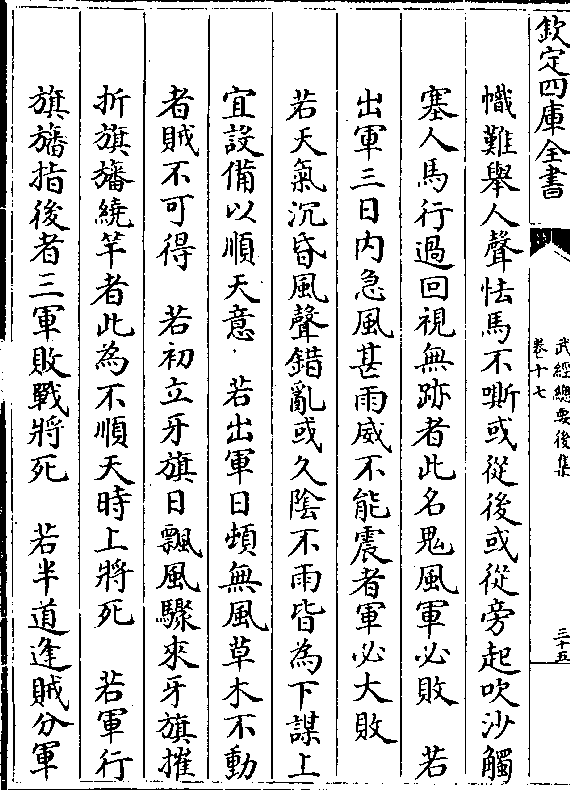 欽定四庫全書
武經總要後集
卷十七
三十五
幟難舉人聲怯馬不嘶或從後或從旁起吹沙觸
塞人馬行過回視無跡者此名鬼風軍必敗　若
出軍三日内急風甚雨威不能震者軍必大敗
若天氣沉昏風聲錯亂或久陰不雨皆為下謀上
宜設備以順天意　若出軍日頓無風草木不動
者賊不可得　若初立牙旗日飄風驟來牙旗摧
折旗旛繞竿者此為不順天時上將死　若軍行
旗旛指後者三軍敗戰將死　若半道逢賊分軍